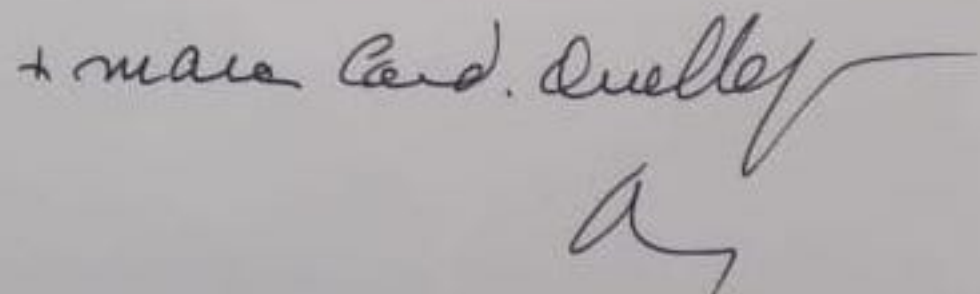 + Marc Card. Ouellet